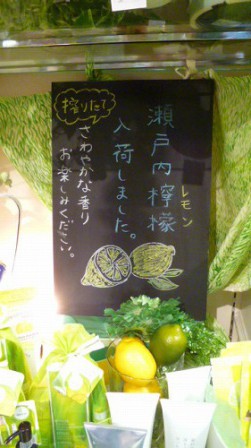 瀬戸内檸檬
レモン
入荷しました。
搾りたて
さわやかな香り
お楽しみください。